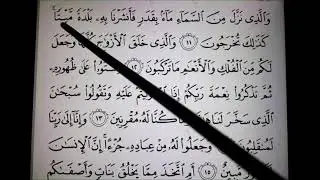 وَٱلَّذِى نَزَّلَ مِنَ ٱلسَّمَآءِ مَآءًۢ بِقَدَرٍ فَأَنشَرْنَا بِهِۦ بَلْدَةً مَّيْتًا
كَذَٰلِكَ تُخْرَجُونَ ١١ وَٱلَّذِى خَلَقَ ٱلْأَزْوَٰجَ كُلَّهَا وَجَعَلَ
لَكُم مِّنَ ٱلْفُلْكِ وَٱلْأَنْعَٰمِ مَا تَرْكَبُونَ ١٢ لِتَسْتَوُۥا۟ عَلَىٰ ظُهُورِهِۦ
ثُمَّ تَذْكُرُوا۟ نِعْمَةَ رَبِّكُمْ إِذَا ٱسْتَوَيْتُمْ عَلَيْهِ وَتَقُولُوا۟ سُبْحَٰنَ
ٱلَّذِى سَخَّرَ لَنَا هَٰذَا كُنَّا لَهُۥ مُقْرِنِينَ ١٣ وَإِنَّآ إِلَىٰ رَبِّنَا
لَمُنقَلِبُونَ وَجَعَلُوا۟ لَهُۥ مِنْ عِبَادِهِۦ جُزْءًا إِنَّ ٱلْإِنسَٰنَ
مُّبِينٌ ١٥ أَمِ ٱتَّخَذَ مِمَّا يَخْلُقُ بَنَاتٍ وَأَصْفَىٰكُم